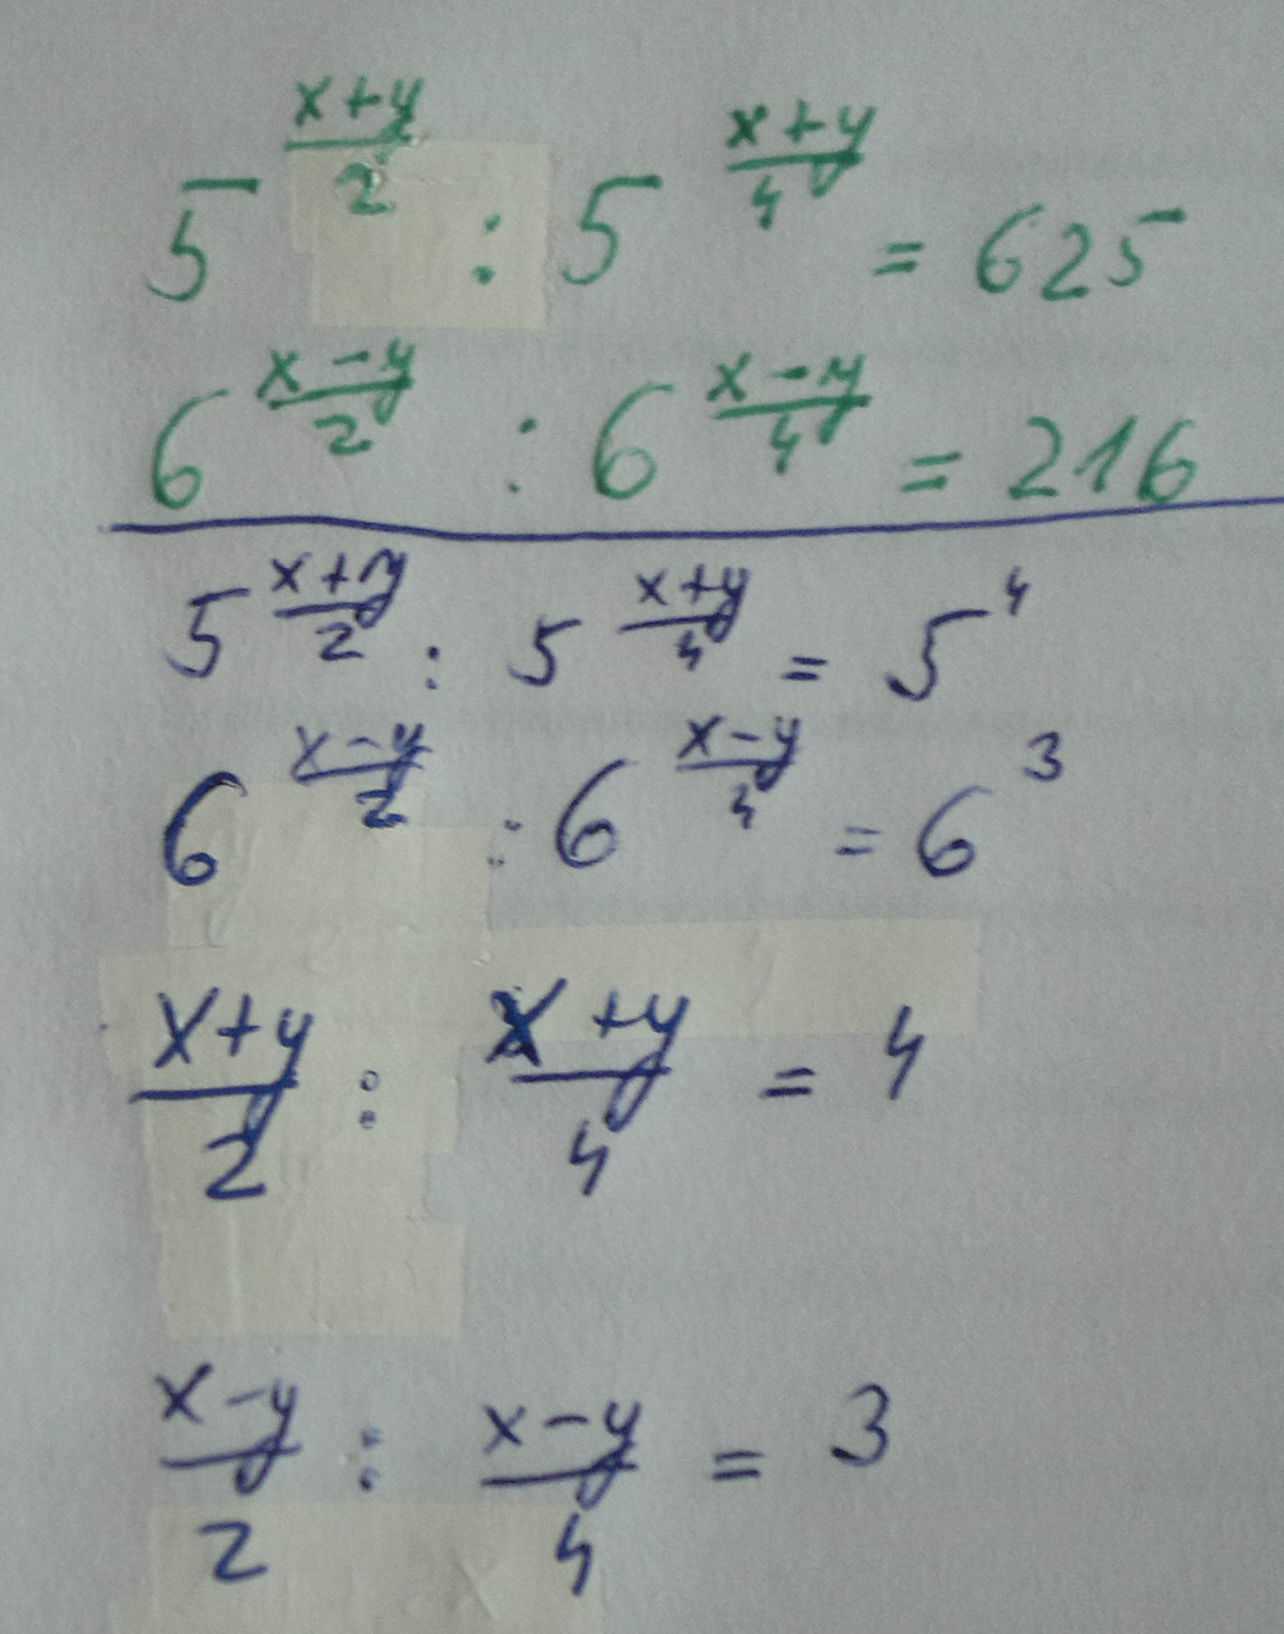 5^((x+y)/2) : 5^((x+y)/4) = 625
6^((x-y)/2) : 6^((x-y)/4) = 216
5^((x+y)/2) : 5^((x+y)/4) = 5^4
6^((x-y)/2) : 6^((x-y)/4) = 6^3
(x+y)/2 : (x+y)/4 = 4
(x-y)/2 : (x-y)/4 = 3